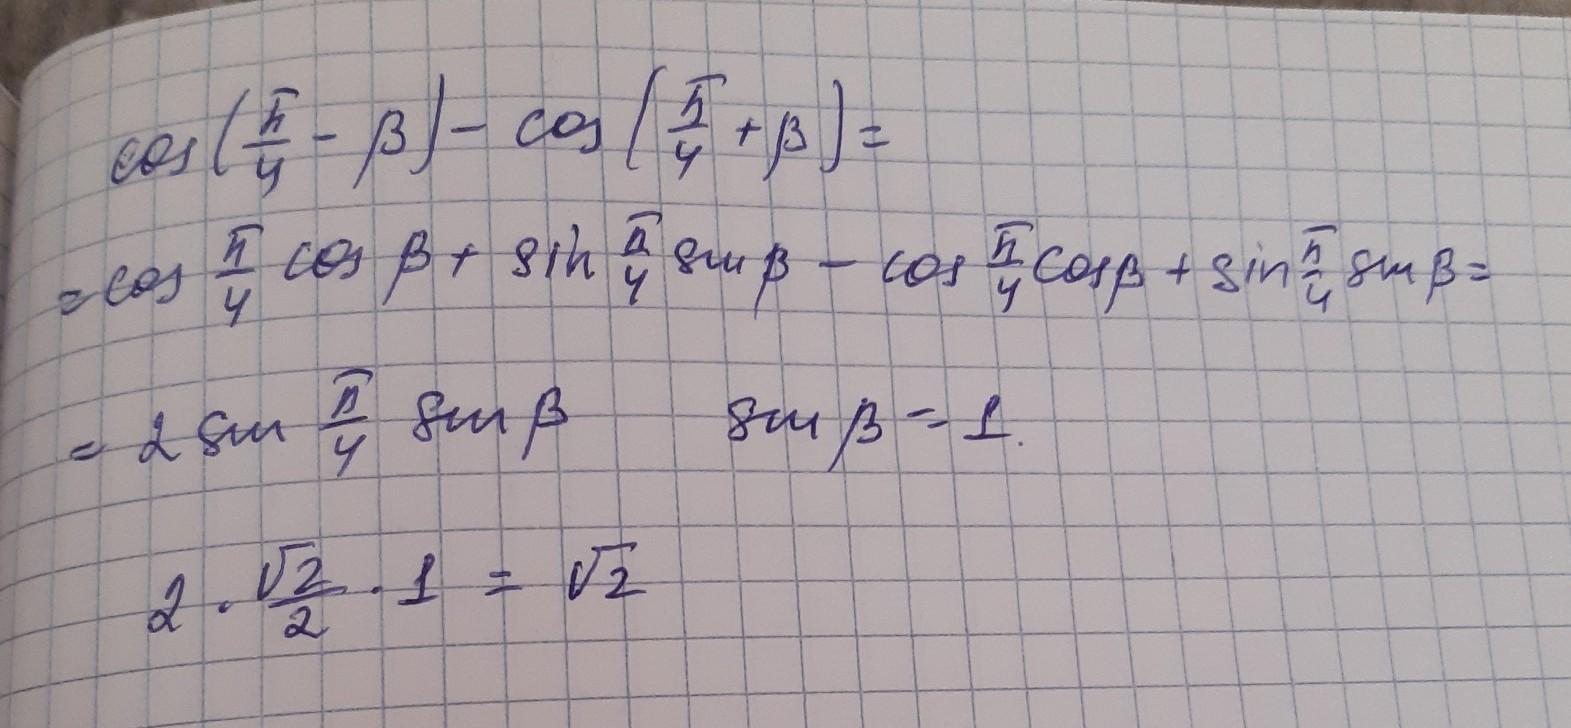 cos(π/4 - β) - cos(π/4 + β) =
= cos π/4 cos β + sin π/4 sin β - cos π/4 cos β + sin π/4 sin β =
= 2 sin π/4 sin β sin β = 1.
2 · √2/2 · 1 = √2